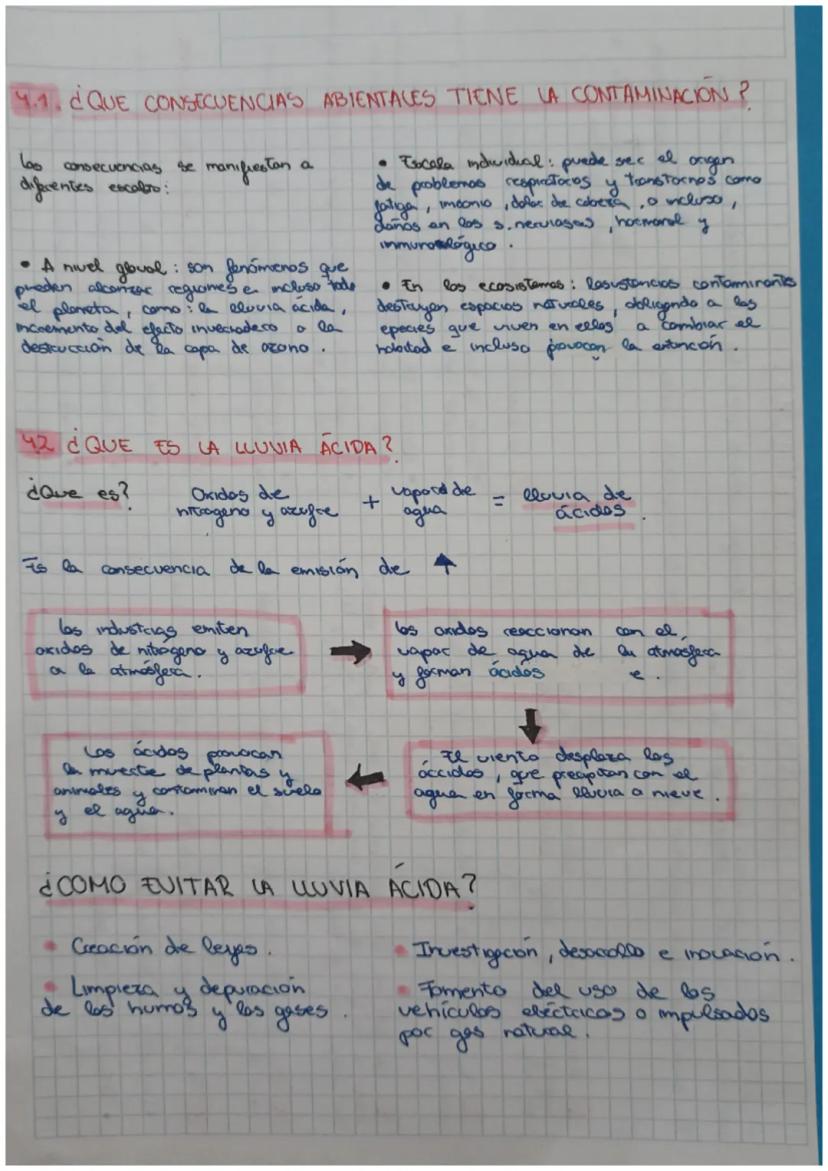 4.1. ¿QUE CONSECUENCIAS ABIENTALES TIENE LA CONTAMINACIÓN?
Las consecuencias se manifiestan a
diferentes escalas:
• A nivel global: son fenómenos que
pueden alcanzar regiones e incluso todo
el planeta, como: la lluvia ácida,
incremento del efecto invernadero o la
destrucción de la capa de ozono.
• Escala individual: puede ser el origen
de problemas respiratorios y transtornos como
fatiga, imsonio, dolor de cabeza, o incluso,
daños en los s. nerviosas, hormonal y
inmunológico.
• En los ecosistemas: las sustancias contaminantes
destruyen espacios naturales, obligando a las
epecies que viven en ellos a cambiar el
habitad e incluso provocan la extinción.
4.2 ¿QUE ES LA LLUVIA ÁCIDA?
¿Que es? Oxidos de
nitrogeno y azufre + vapor de
agua = lluvia de
ácidos.
Es la consecuencia de la emisión de ↑
Las industrias emiten
oxidos de nitrogeno y azufre
a la atmósfera.
➡
los oxidos reaccionan con el
vapor de agua de la atmosfera
y forman ácidos e.
⬇
El viento desplaza los
áccidos, que precipitan con el
agua en forma lluvia o nieve.
⬅
Los ácidos provocan
la muerte de plantas y
animales y contaminan el suelo
y el agua.
¿COMO EVITAR LA LLUVIA ÁCIDA?
• Creación de leyes.
• Limpieza y depuración
de los humos y los gases.
• Investigación, desarrollo e inovación.
• Fomento del uso de los
vehículos eléctricos o impulsados
por gas natural.